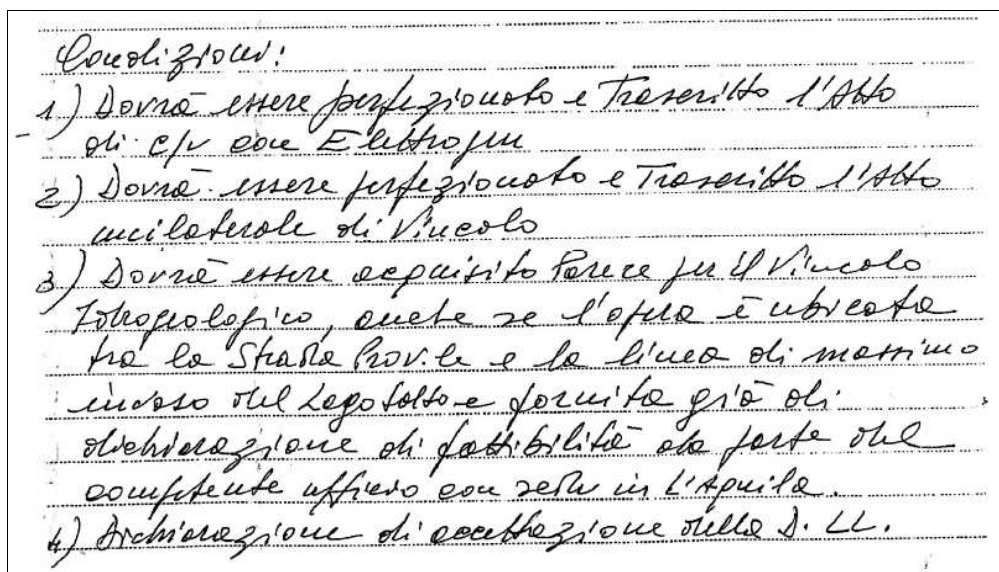 Condizioni:
1) Dovrà essere perfezionato e Trascritto l'Atto
di c/v con Elettrogen
2) Dovrà essere perfezionato e Trascritto l'Atto
unilaterale di Vincolo
3) Dovrà essere acquisito Parere per il Vincolo
Idrogeologico, anche se l'opera è ubicata
tra la Strada Prov.le e la linea di massimo
invaso del Lago e fornita già di
dichiarazione di fattibilità da parte del
competente ufficio con sede in L'Aquila.
4) Dichiarazione di accettazione della D. LL.